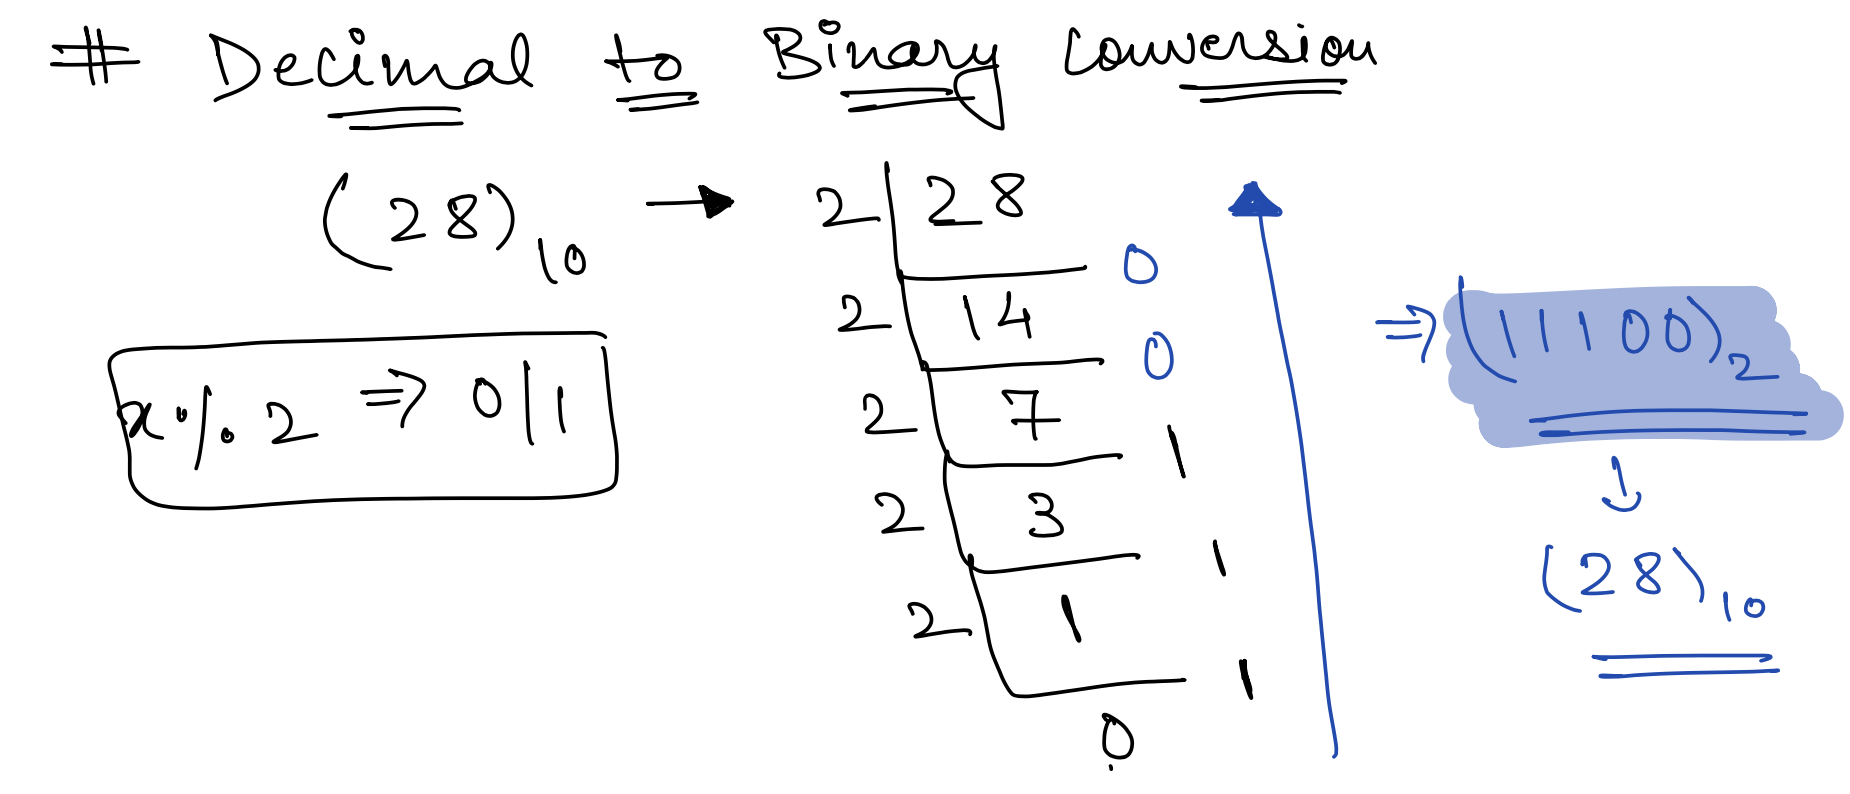 # Decimal to Binary Conversion
(28)10 → 2 | 28
0
2 | 14
0
2 | 7
1
2 | 3
1
2 | 1
1
0
x % 2 ⇒ 0|1
⇒ (11100)2
↓
(28)10